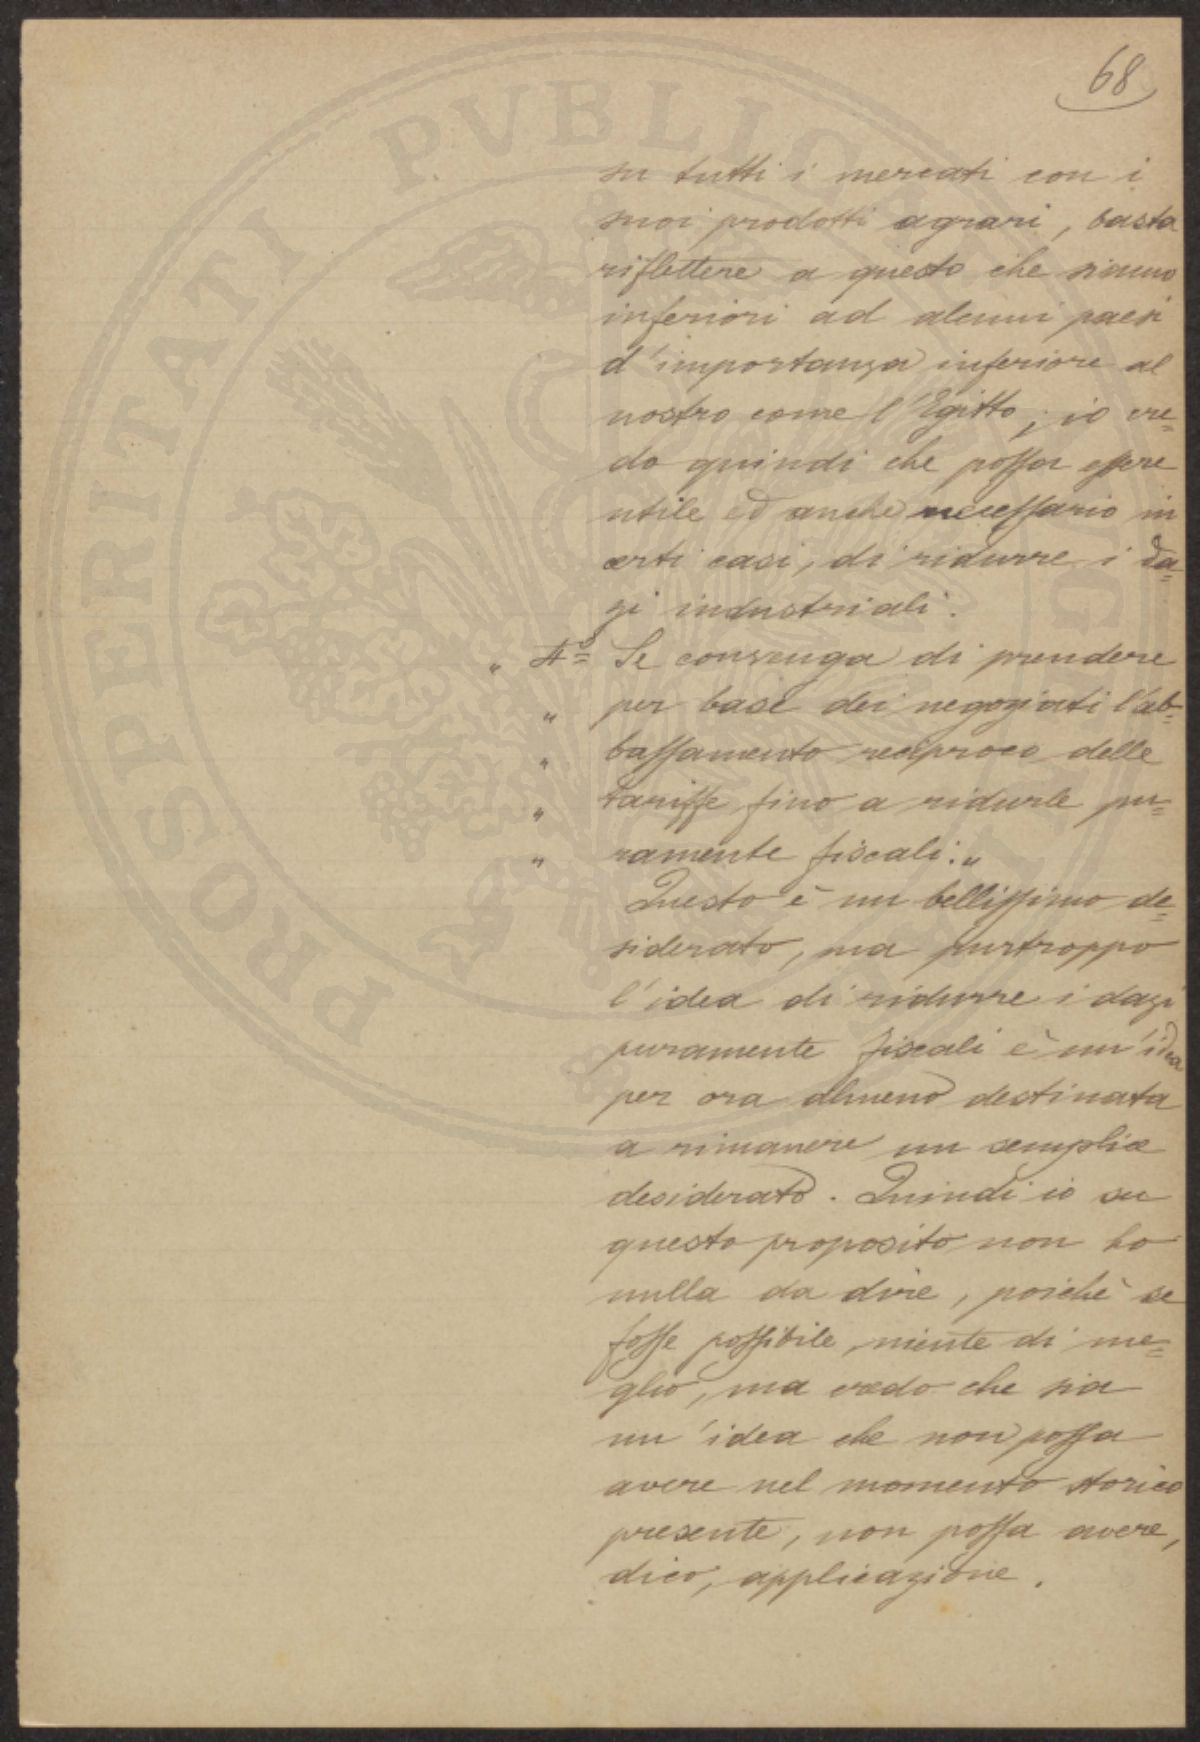 68
su tutti i mercati con i
suoi prodotti agrari, basta
riflettere a questo che siamo
inferiori ad alcuni paesi
d'importanza inferiore al
nostro come l'Egitto; io cre=
do quindi che possa essere
utile ed anche necessario in
certi casi, di ridurre i da=
zi industriali.
„ 4º= Se convenga di prendere
„ per base dei negoziati l'ab=
„ bassamento reciproco delle
„ tariffe fino a ridurle pu=
„ ramente fiscali."
Questo è un bellissimo de=
siderato, ma purtroppo
l'idea di ridurre i dazi
puramente fiscali è un'idea
per ora almeno destinata
a rimanere un semplice
desiderato. Quindi io su
questo proposito non ho
nulla da dire, poichè se
fosse possibile, niente di me=
glio, ma credo che sia
un'idea che non possa
avere nel momento storico
presente, non possa avere,
dico, applicazione.
PROSPERITATI PVBLICAE